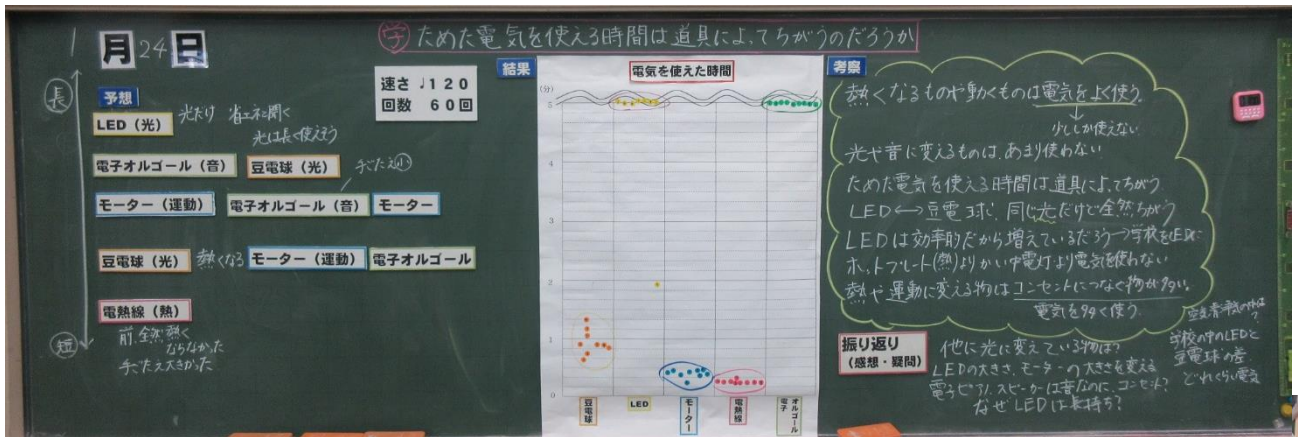 1月24日
学 ためた電気を使える時間は道具によってちがうのだろうか
長
予想
LED（光）
光だけ 省エネと聞く
光は長く使えそう
電子オルゴール（音）
豆電球（光）
手ごたえ小
モーター（運動）
電子オルゴール（音）
モーター
豆電球（光）
熱くなる
モーター（運動）
電子オルゴール
電熱線（熱）
前、全然熱く
ならなかった
手ごたえ大きかった
短
速さ ♩120
回数 60回
結果
電気を使えた時間
（分）
5
4
3
2
1
0
豆電球
LED
モーター
電熱線
電子オルゴール
考察
熱くなるものや動くものは電気をよく使う。
少ししか使えない
光や音に変えるものは、あまり使わない
ためた電気を使える時間は道具によってちがう
LED⟷豆電球、同じ光だけど全然ちがう
LEDは効率的だから増えているだろう→学校をLEDに
ホットプレート(熱)よりかい中電灯より電気を使わない
熱や運動に変える物はコンセントにつなぐ物が多い。
電気を多く使う
振り返り
（感想・疑問）
他に光に変えている物は？
LEDの大きさ、モーターの大きさを変える
電子ピアノ、スピーカーは音なのに、コンセント？
なぜLEDは長持ち？
学校の中のLEDと
豆電球の差
どれくらい電気